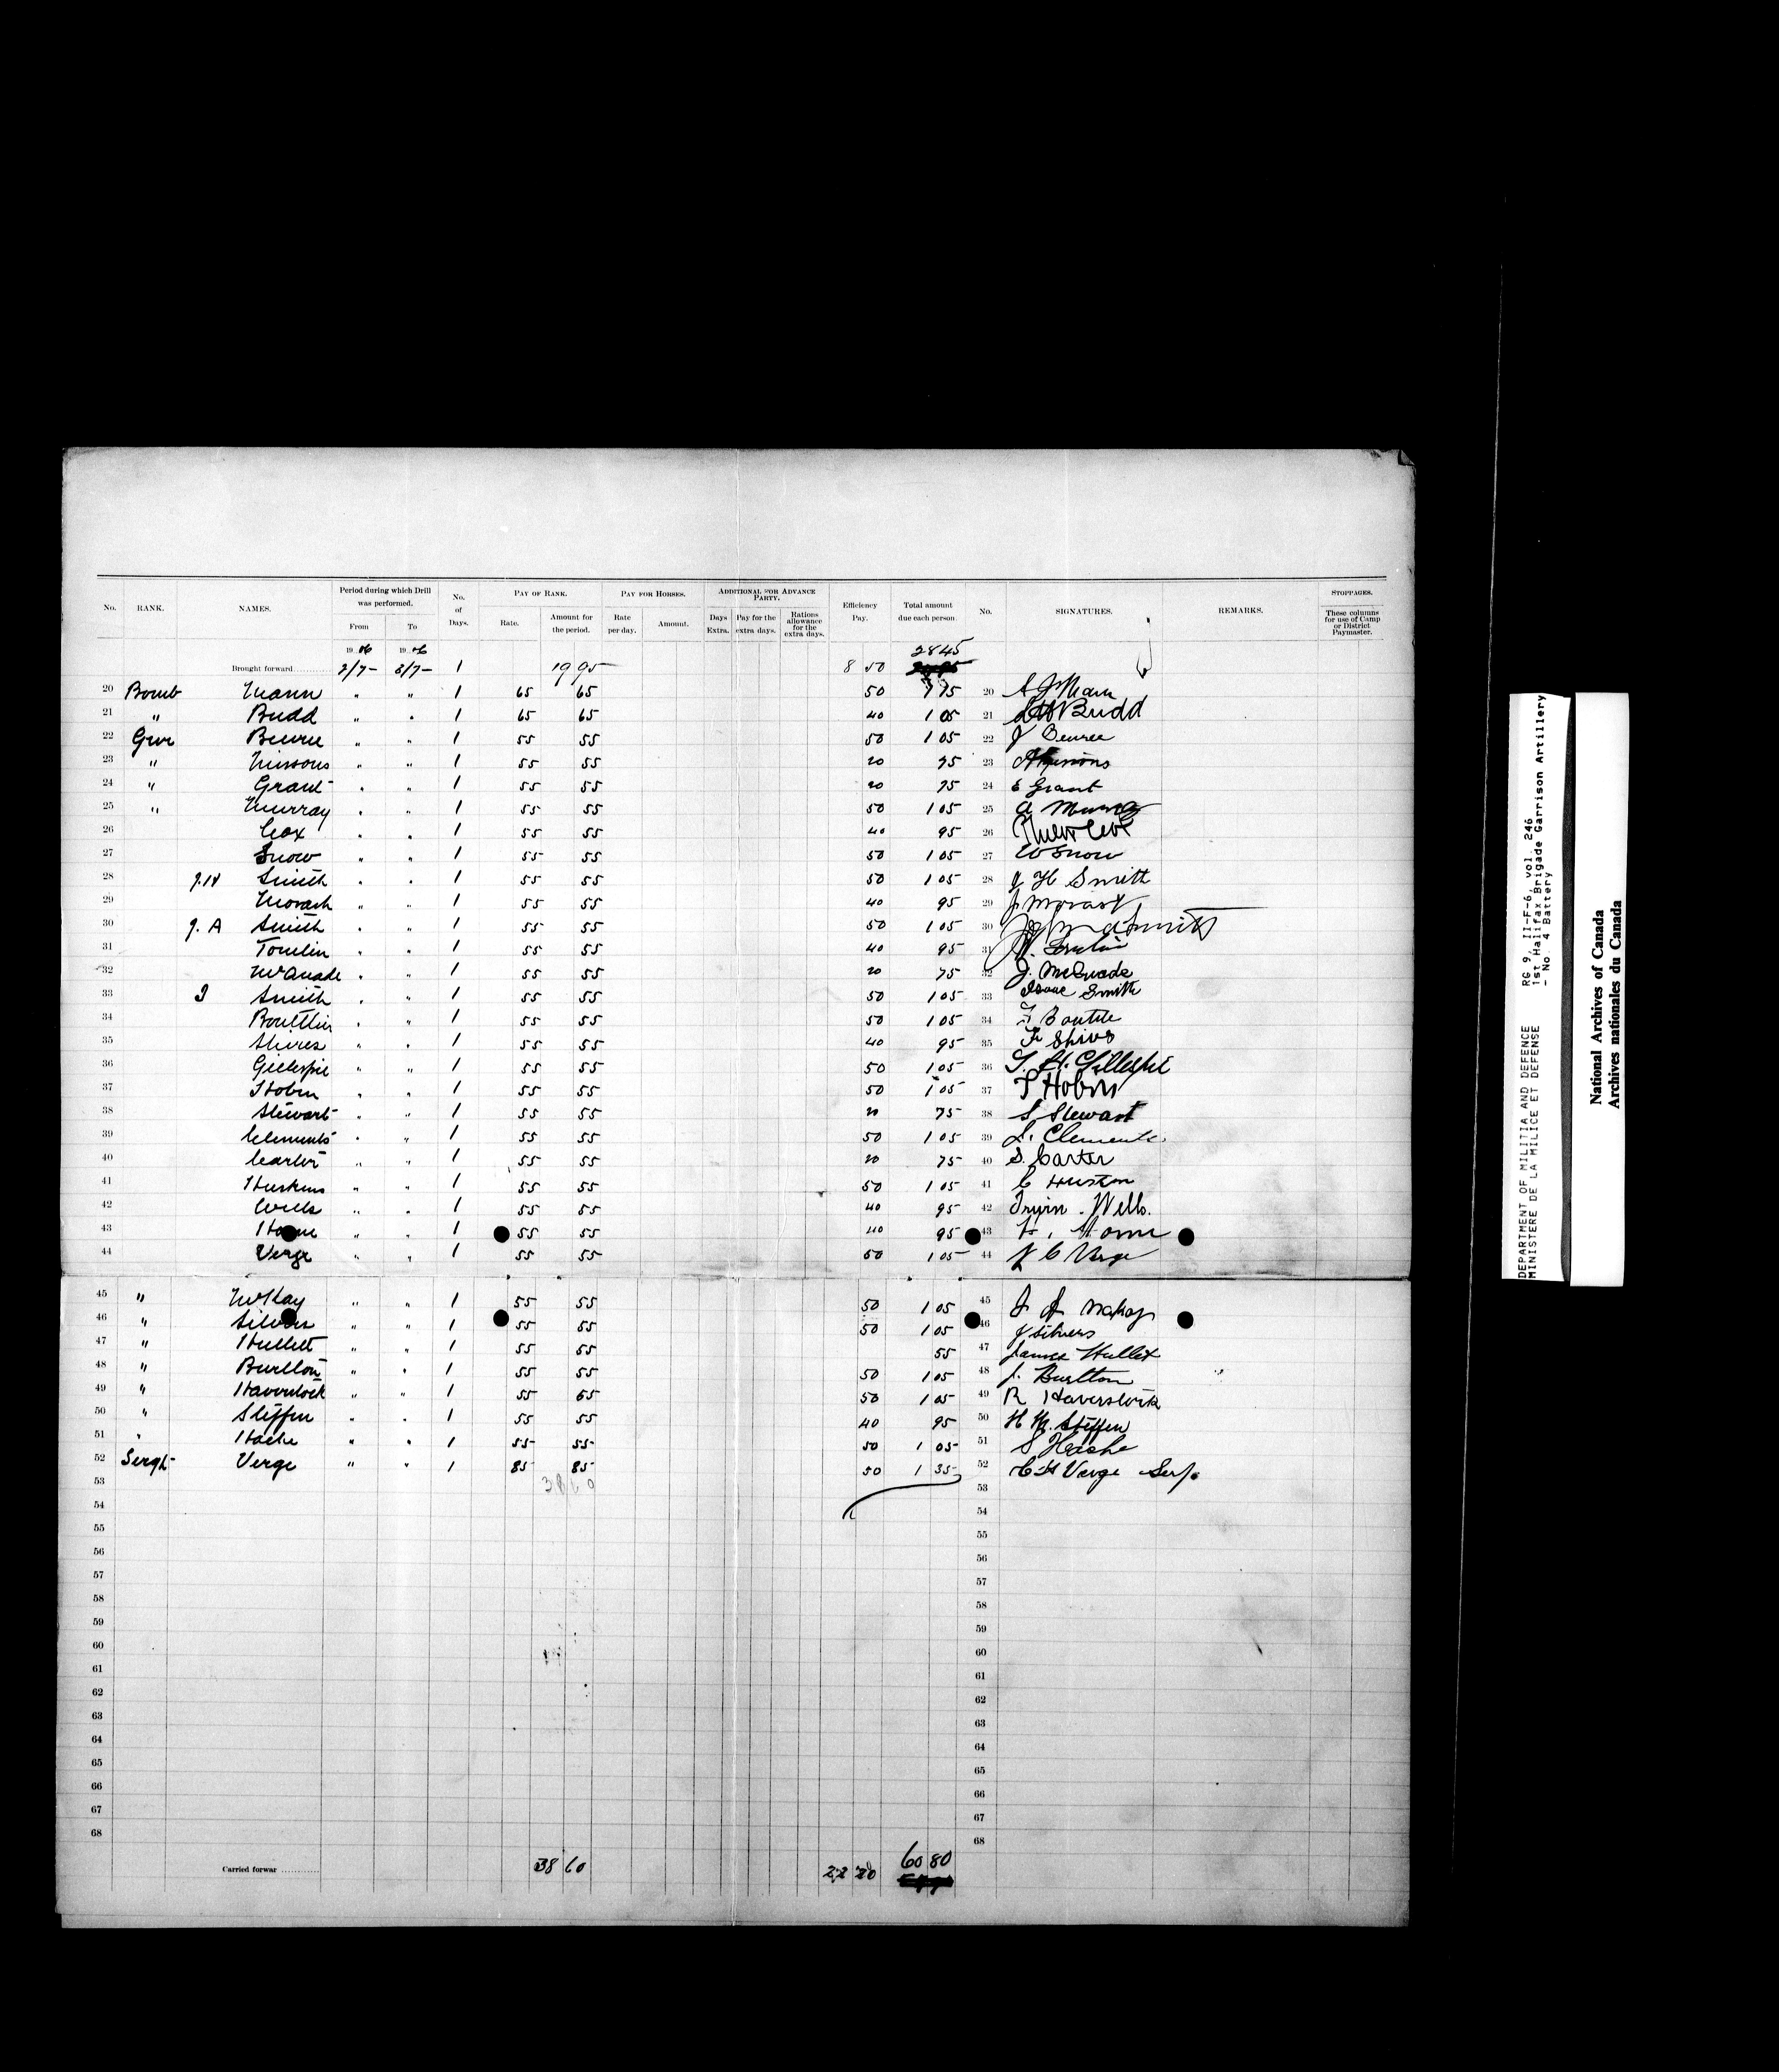 No. RANK. NAMES. Period during which Drill was performed. From To No. of Days. PAY OF RANK. Rate. Amount for the period. PAY FOR HORSES. Rate per day. Amount. ADDITIONAL FOR ADVANCE PARTY. Days Extra. Pay for the extra days. Rations allowance for the extra days. Efficiency Pay. Total amount due each person. No. SIGNATURES. REMARKS. STOPPAGES. These columns for use of Camp or District Paymaster.
1906 1906 2845
Brought forward 2/7- 3/7- 1 19 95 8 50
20 Bomb Mann " " 1 65 65 50 1 15 20
21 " Budd " " 1 65 65 40 1 05 21 Budd
22 Gnr " " 1 55 55 50 1 05 22 J
23 " " " 1 55 55 20 75 23
24 " Grant " " 1 55 55 20 75 24 E Grant
25 " Murray " " 1 55 55 50 1 05 25 A Murray
26 Cox " " 1 55 55 40 95 26
27 Snow " " 1 55 55 50 1 05 27 W Snow
28 J.H Smith " " 1 55 55 50 1 05 28 J H Smith
29 Morash " " 1 55 55 40 95 29 J Morash
30 J. A Smith " " 1 55 55 50 1 05 30 Smith
31 Tomlin " " 1 55 55 40 95 31
32 McQuade " " 1 55 55 20 75 32 J. McQuade
33 I Smith " " 1 55 55 50 1 05 33 Isaac Smith
34 " " 1 55 55 50 1 05 34
35 " " 1 55 55 40 95 35
36 Gillespie " " 1 55 55 50 1 05 36 Gillespie
37 Hobin " " 1 55 55 50 1 05 37 T Hobin
38 Stewart " " 1 55 55 20 75 38 S Stewart
39 Clements " " 1 55 55 50 1 05 39 Clements
40 Carter " " 1 55 55 20 75 40 S. Carter
41 " " 1 55 55 50 1 05 41 C
42 Wells " " 1 55 55 40 95 42 Wells.
43 " " 1 55 55 40 95 43
44 Verge " " 1 55 55 50 1 05 44 Verge
45 " McKay " " 1 55 55 50 1 05 45
46 " Silvers " " 1 55 55 50 1 05 46 J Silvers
47 " Hullett " " 1 55 55 55 47 James Hullet
48 " Burlton " " 1 55 55 50 1 05 48 J. Burlton
49 " " " 1 55 55 50 1 05 49 R
50 " Steffen " " 1 55 55 40 95 50 Steffen
51 " " " 1 55 55 50 1 05 51
52 Sergt Verge " " 1 85 85 50 1 35 52 Verge
53 38 60 53
54 54
55 55
56 56
57 57
58 58
59 59
60 60
61 61
62 62
63 63
64 64
65 65
66 66
67 67
68 68
Carried forwar 38 60 22 20 60 80
DEPARTMENT OF MILITIA AND DEFENCE RG 9, II-F-6, vol. 246
MINISTERE DE LA MILICE ET DEFENSE 1st Halifax Brigade Garrison Artillery
- No. 4 Battery
National Archives of Canada
Archives nationales du Canada